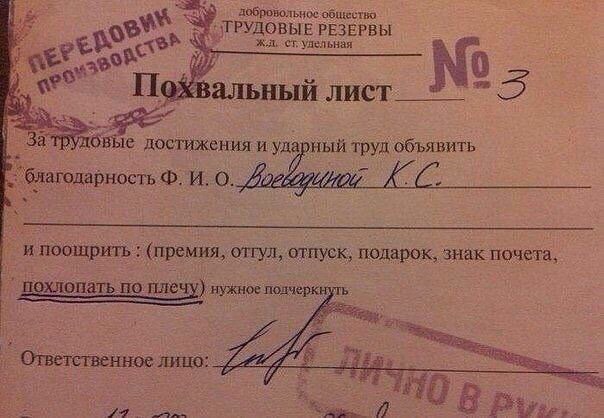 добровольное общество
ТРУДОВЫЕ РЕЗЕРВЫ
ж.д. ст. удельная
ПЕРЕДОВИК
ПРОИЗВОДСТВА
Похвальный лист № 3
За трудовые достижения и ударный труд объявить
благодарность Ф. И. О. Воеводиной К. С.
и поощрить : (премия, отгул, отпуск, подарок, знак почета,
похлопать по плечу) нужное подчеркнуть
Ответственное лицо:
ЛИЧНО В РУКИ